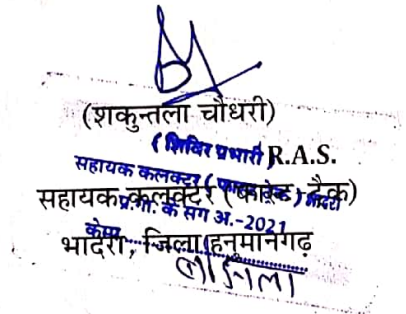 (शकुन्तला चौधरी)
(शिविर प्रभारी) R.A.S.
सहायक कलक्टर (फास्ट ट्रेक) भादरा
सहायक कलक्टर (फास्ट-ट्रैक)
प्र.गां. के संग अ.-2021
कैम्प
भादरा, जिला हनुमानगढ़